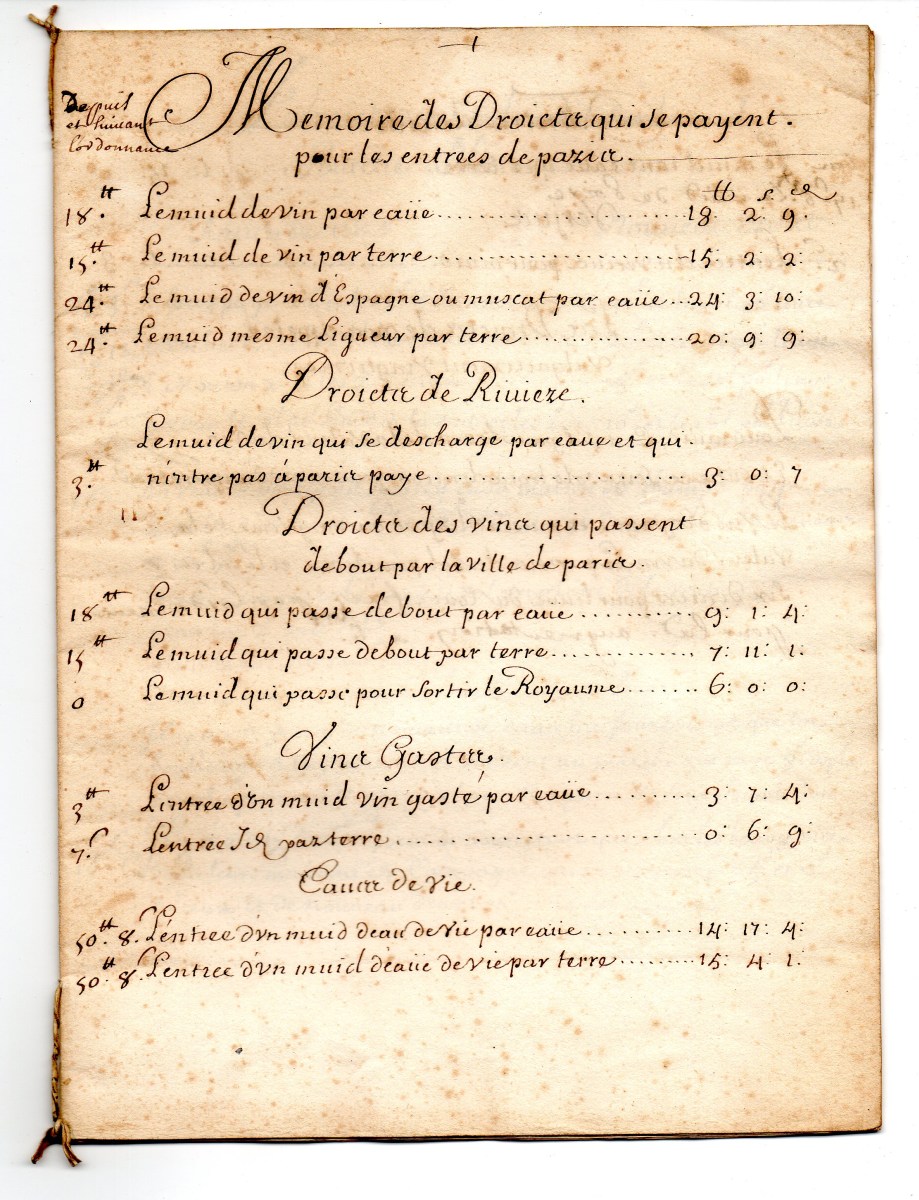 1
Depuis
et suivant
lordonnance
Memoire des Droicts qui se payent.
pour les entrees de paris.
tt s d
18.tt Le muid de vin par eaüe .......... 18. 2: 9.
15.tt Le muid de vin par terre .......... 15: 2: 2:
24.tt Le muid de vin d'Espagne ou muscat par eaüe ... 24: 3: 10:
24.tt Le muid mesme Liqueur par terre .......... 20: 9: 9:
Droicts de Riuiere.
Le muid de vin qui se descharge par eaue et qui.
3.tt n'intre pas á paris paye .......... 3: 0: 7
Droicts des vins qui passent
debout par la ville de paris.
18tt Le muid qui passe debout par eaüe .......... 9: 1: 4:
15tt Le muid qui passe debout par terre .......... 7: 11: 1:
0 Le muid qui passe pour sortir le Royaume ....... 6: 0: 0:
Vins Gastés.
3tt Lentree d'un muid vin gasté par eaüe .......... 3: 7: 4:
7.s Lentree Id par terre .......... 0: 6: 9:
Eaues de vie.
50.tt 8.s L'entree d'vn muid d'eau de vie par eaüe .......... 14: 17: 4:
50.tt 8.s Lentree d'vn muid d'eaüe de vie par terre .......... 15: 4: 1: